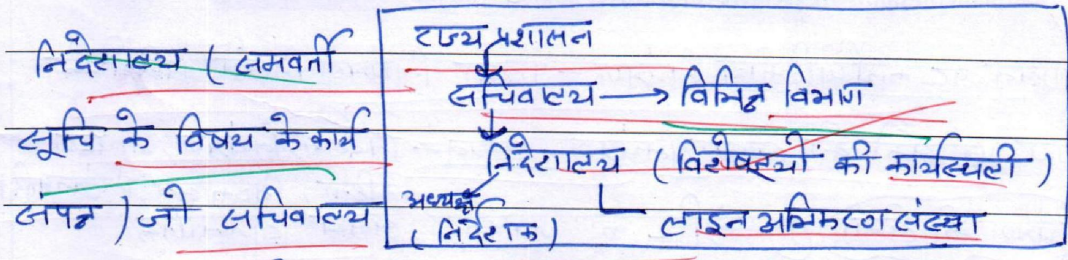 निदेशालय ( समवर्ती
सूचि के विषय के कार्य
संपन्न ) जो सचिवालय
राज्य प्रशासन
सचिवालय → विभिन्न विभाग
निदेशालय ( विशेषज्ञयों की कार्यस्थली )
अध्यक्ष
( निदेशक )
लाइन अभिकरण संस्था